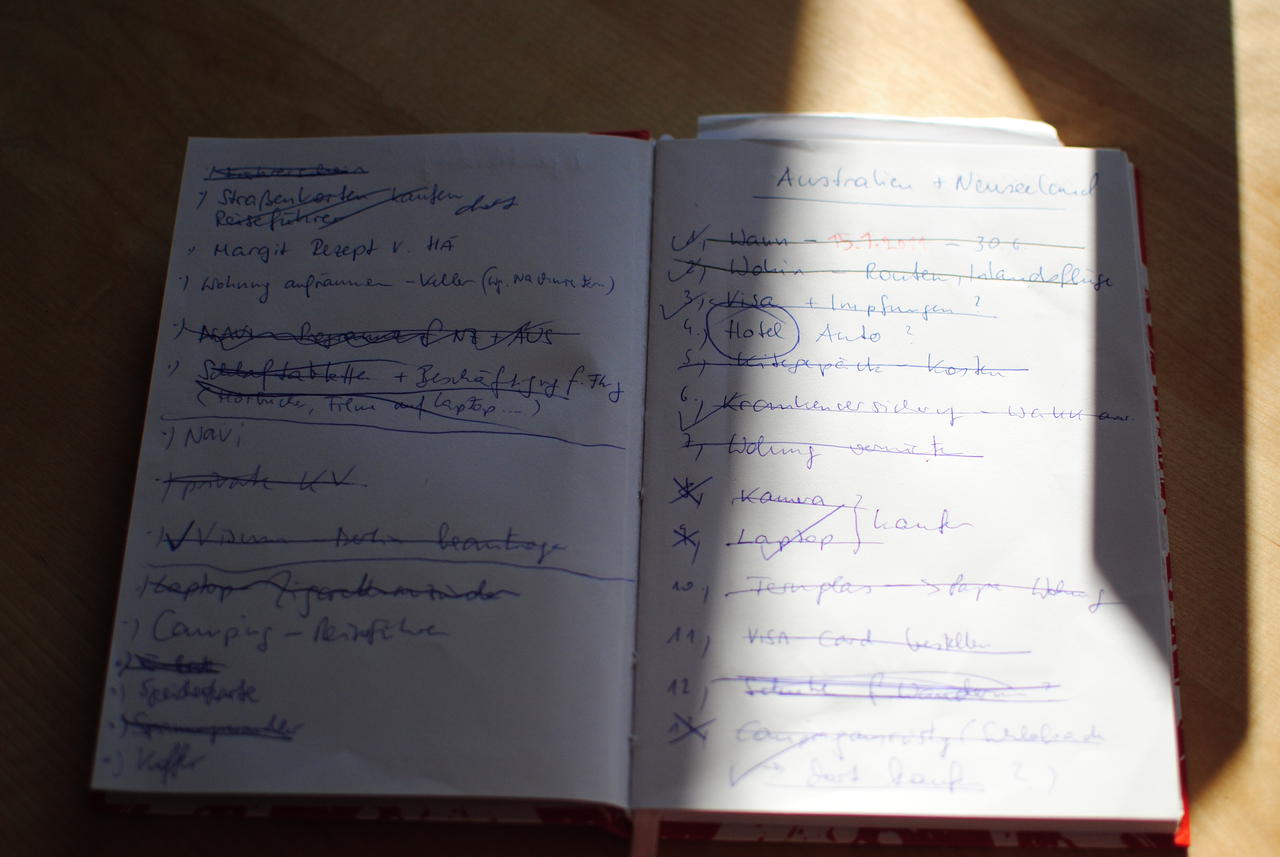 ·) Straßenkarten kaufen
Reiseführer dort
·) Margit Rezept v. HÄ
·) Wohnung aufräumen - Keller (wg.
·) NAVI - f NZ + AUS
·) Schlaftabletten + Beschäftigung f. Flug
(Hörbücher, Filme auf Laptop ...)
·) Navi
·) private KV
·) Visum - beantragen
·) Laptop Zigarettenanzünder
·) Camping - Reiseführer
·)
·) Speicherkarte
·)
·) Koffer
Australien + Neuseeland
1, Wann - 15.1.2011 - 30 6.
2, Wohin - Routen, Inlandsflüge
3, Visa + Impfungen ?
4.) Hotel Auto ?
5, Kitegepäck - Kosten
6, Krankenversicherung - wann
7, Wohnung vermieten
8, Kamera ?
9, Laptop } kaufen
10, Fernglas -> Papa Wohnung
11, VISA Card bestellen
12, Schuhe f Wandern ?
13, Campingausrüstg (Schlafsack
→ dort kaufen ?)